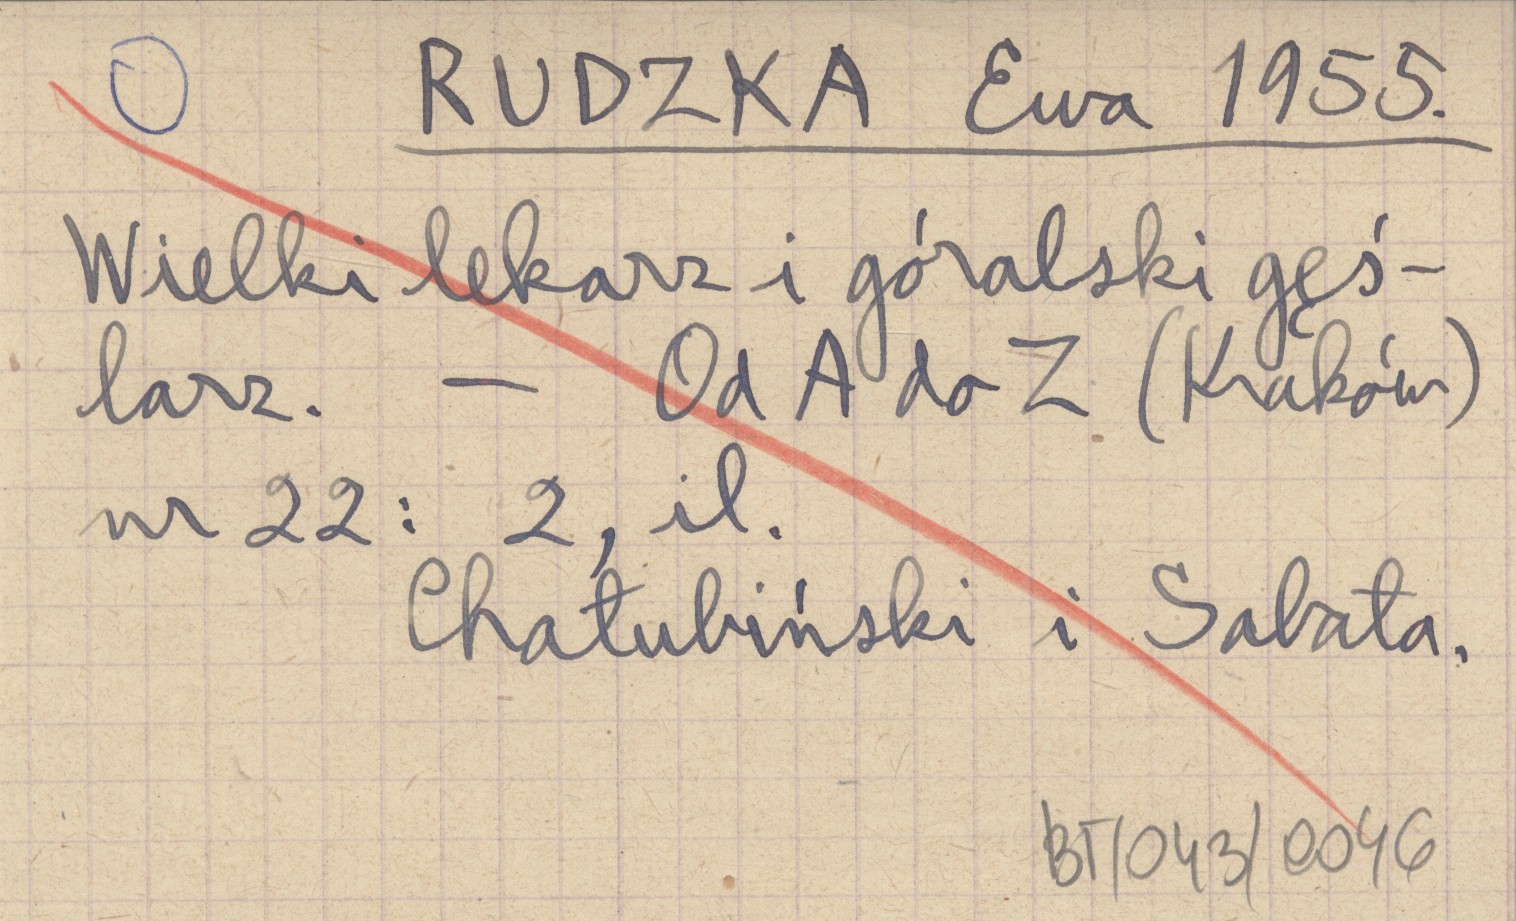 O RUDZKA Ewa 1955.
Wielki lekarz i góralski gęś-
larz. — Od A do Z (Kraków)
nr 22: 2, il.
Chałubiński i Sabała.
BT/043/0046